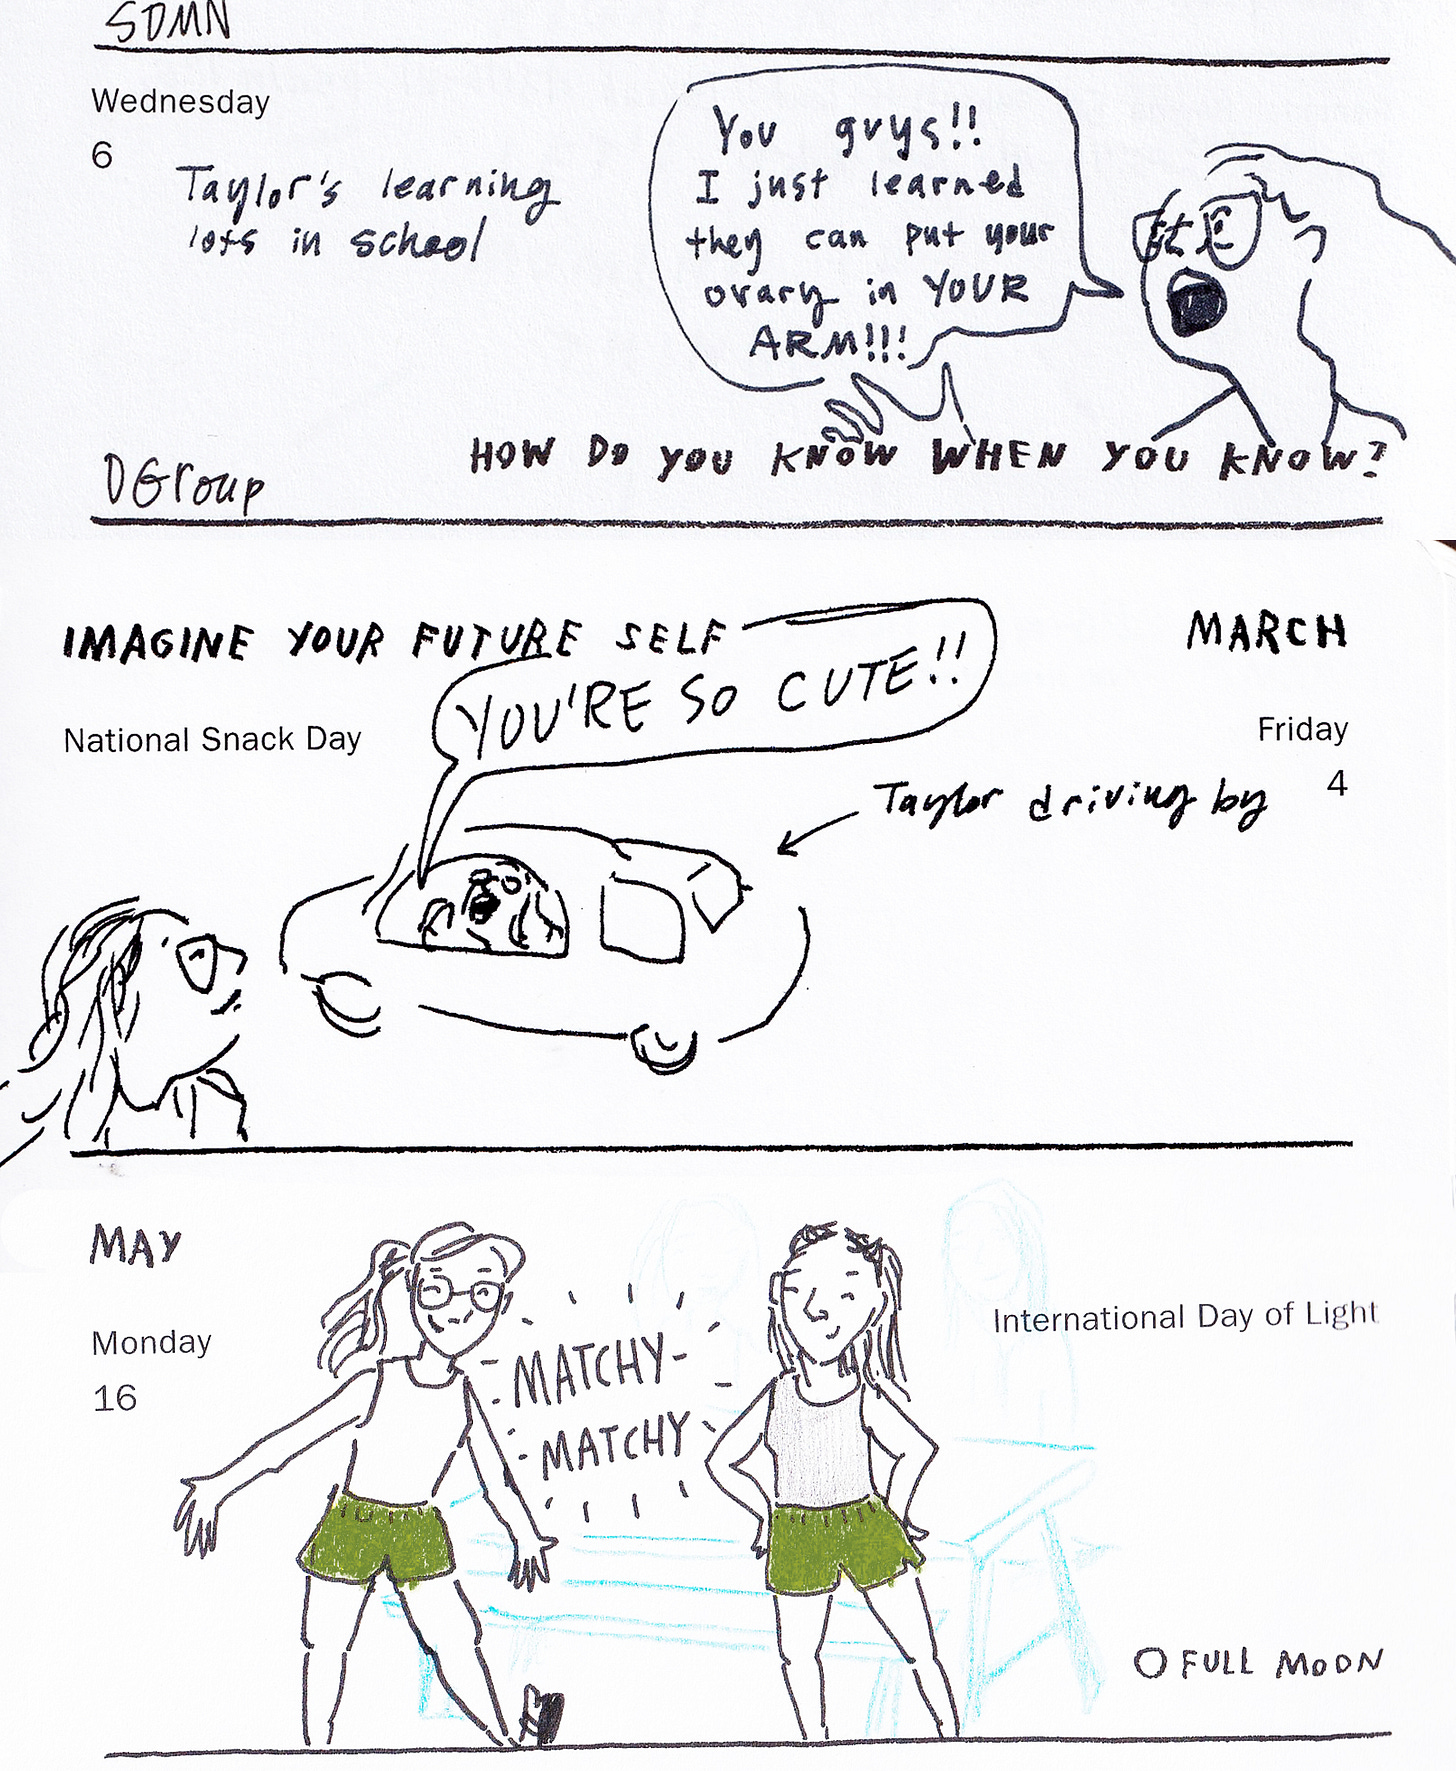 SDMN
Wednesday
6
Taylor's learning
lots in school
You guys!!
I just learned
they can put your
ovary in YOUR
ARM!!!
DGroup
HOW DO YOU KNOW WHEN YOU KNOW?
IMAGINE YOUR FUTURE SELF
MARCH
YOU'RE SO CUTE!!
National Snack Day
Friday
4
Taylor driving by
MAY
Monday
16
International Day of Light
MATCHY-
MATCHY
O FULL MOON